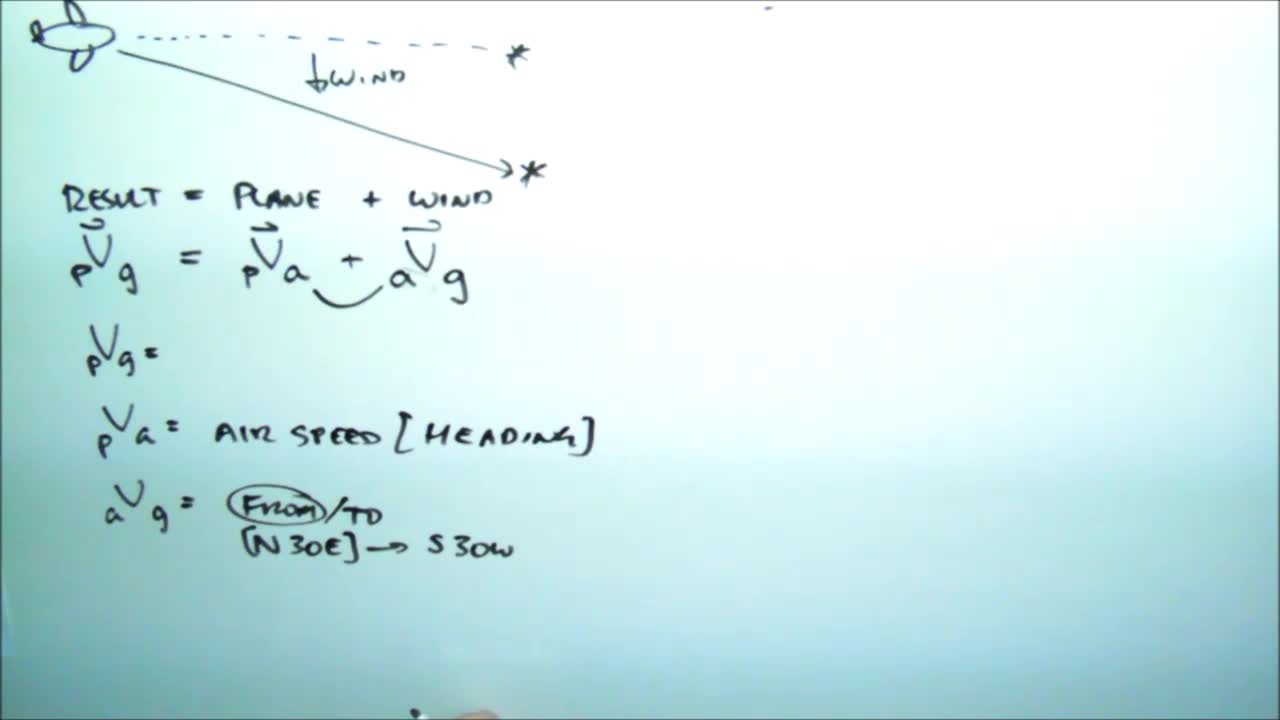 WIND
RESULT = PLANE + WIND
pVg = pVa + aVg
pVg =
pVa = AIR SPEED [HEADING]
aVg = FROM/TO
[N30E] → S30W